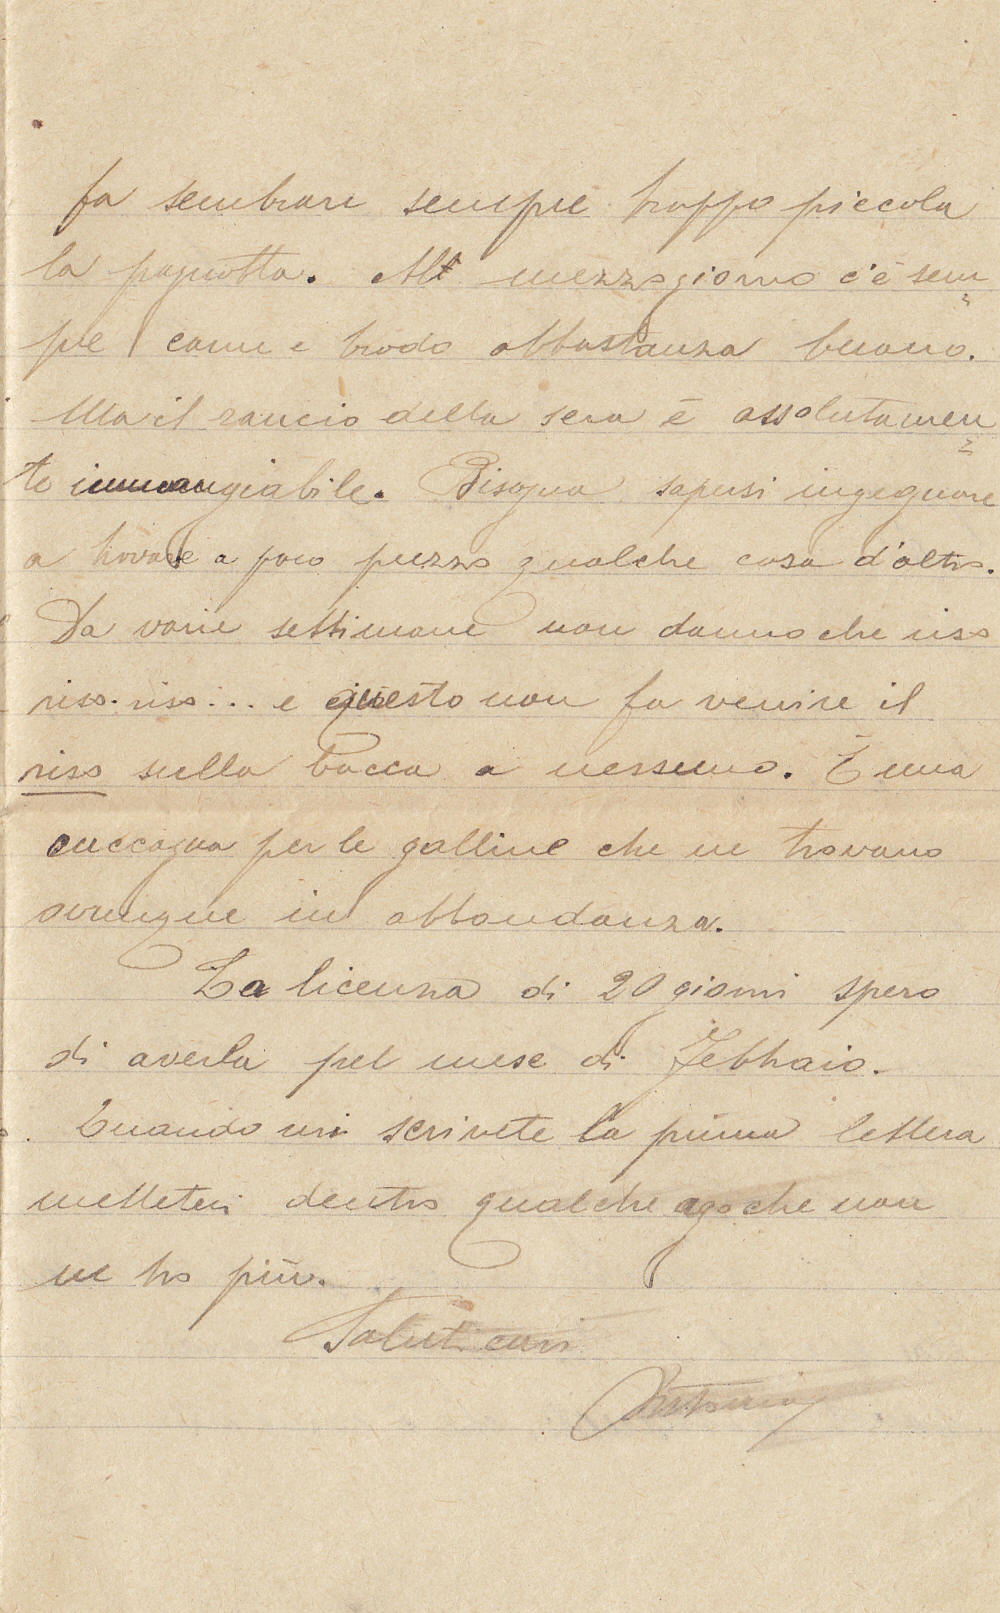 fa sembrare sempre troppo piccola
la pagnotta. Al mezzogiorno c'è sem
pre carne e brodo abbastanza buono.
Ma il rancio della sera è assolutamen
te immangiabile. Bisogna sapersi ingegnare
a trovare a poco prezzo qualche cosa d'altro.
Da varie settimane non danno che riso
riso. riso... e questo non fa venire il
riso sulla bocca a nessuno. È una
cuccagna per le galline che ne trovano
ovunque in abbondanza.
La licenza di 20 giorni spero
di averla pel mese di Febbraio.
Quando mi scrivete la prima lettera
metteteci dentro qualche ago che non
ne ho più.
Saluti cari
Antonio